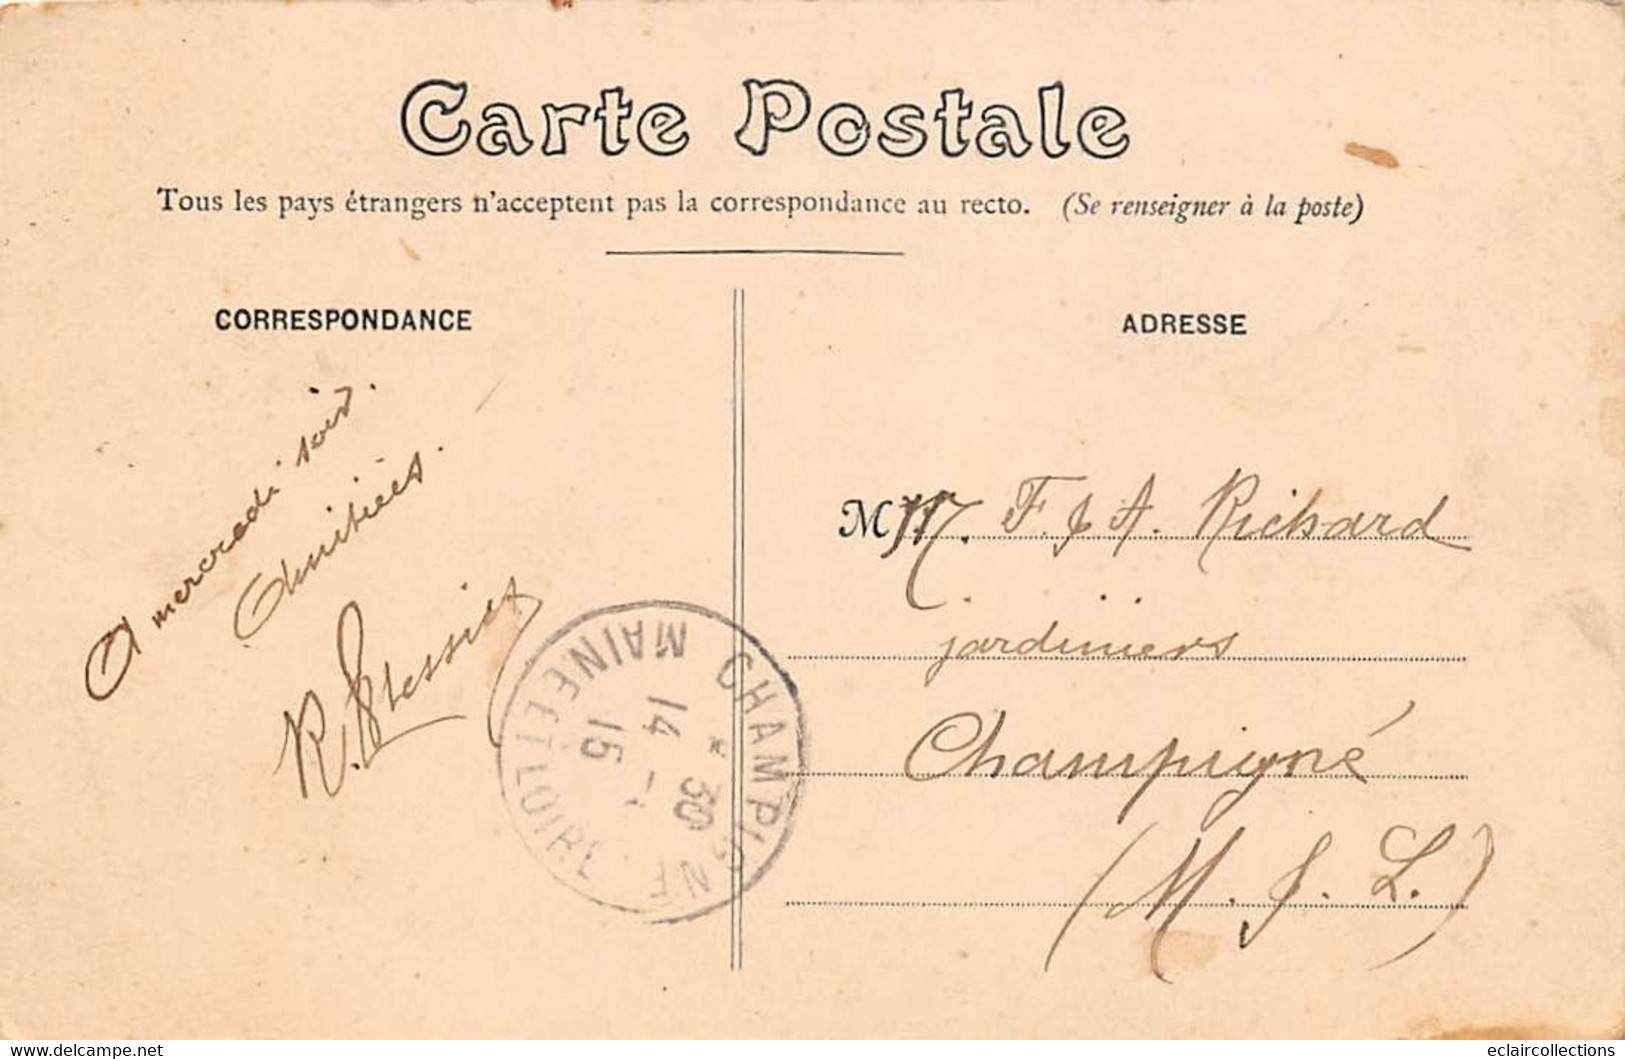 Carte Postale
Tous les pays étrangers n'acceptent pas la correspondance au recto. (Se renseigner à la poste)
CORRESPONDANCE
ADRESSE
A mercredi soir.
Amitiés.
R.
MM. F. & A. Richard
jardiniers
Champigné
(M. & L.)
CHAMPIGNE
MAINE ET LOIRE
* 30
14 - 1
15
delcampe.net
eclaircollections